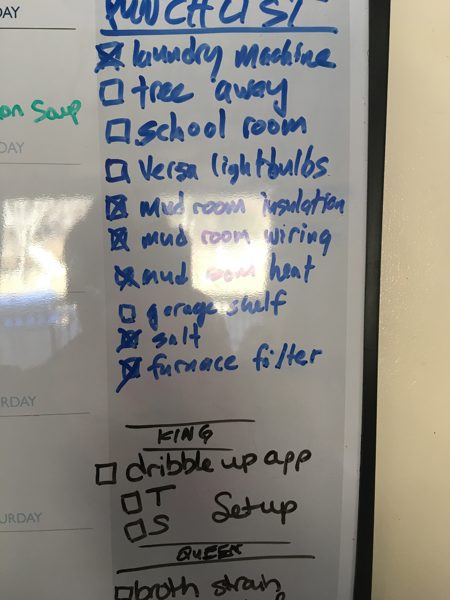 DAY
PUNCH LIST
laundry machine
tree away
on Soup
school room
DAY
Versa lightbulbs
mud room insulation
mud room wiring
mud room heat
garage shelf
salt
furnace filter
RDAY
KING
dribble up app
T
S Setup
URDAY
QUEEN
broth strain